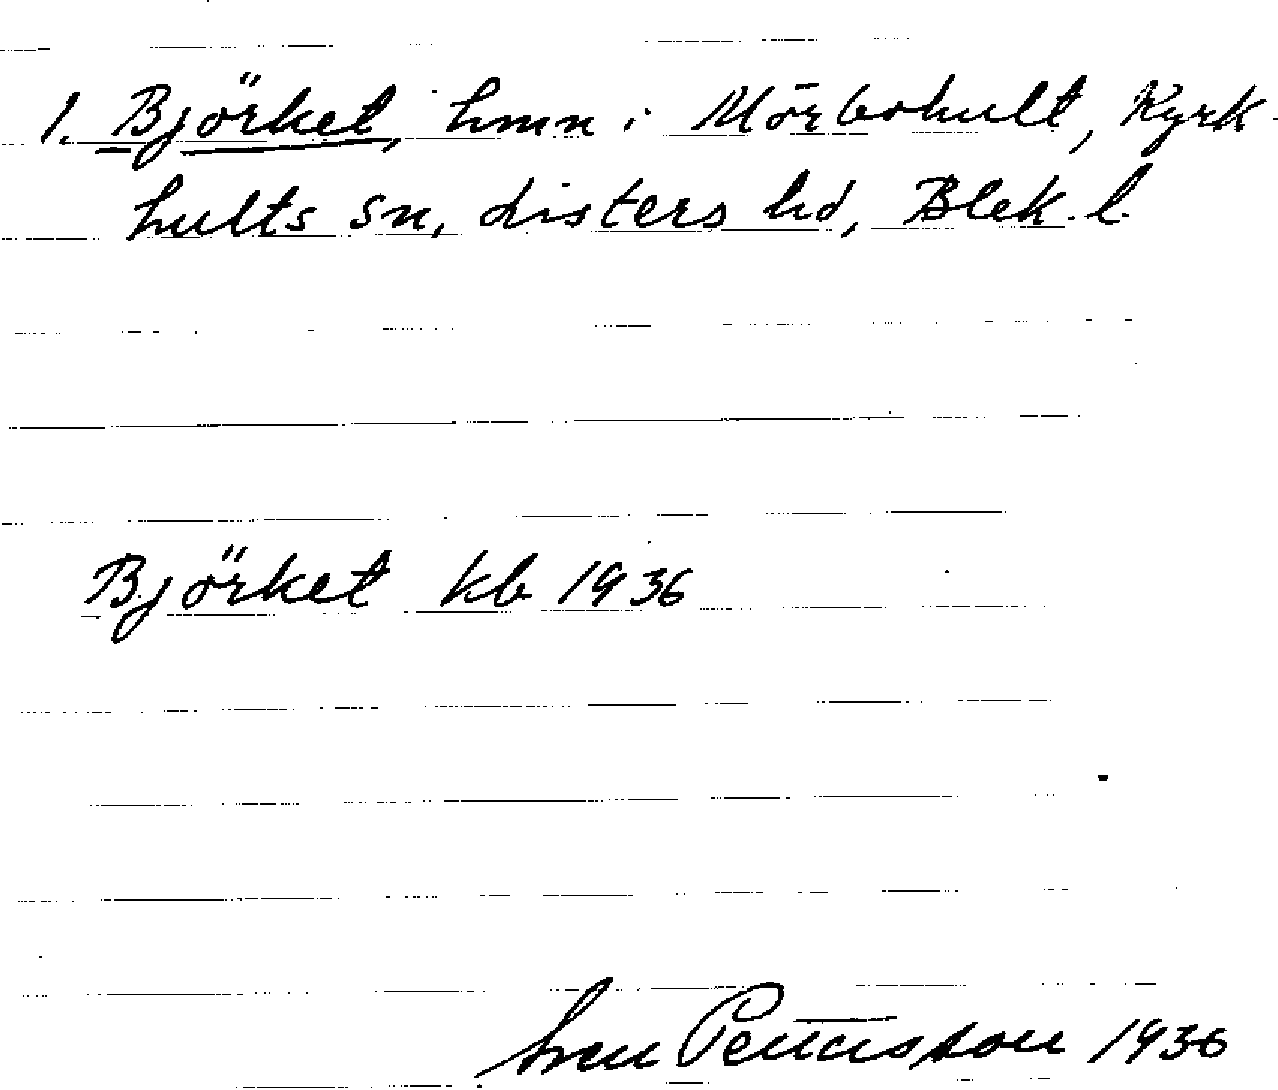 1. Björket, hmn i Mörbohult, Kyrk-
hults sn, Listers hd, Blek. l.
Björket kb 1936
Sven Pettersson 1936